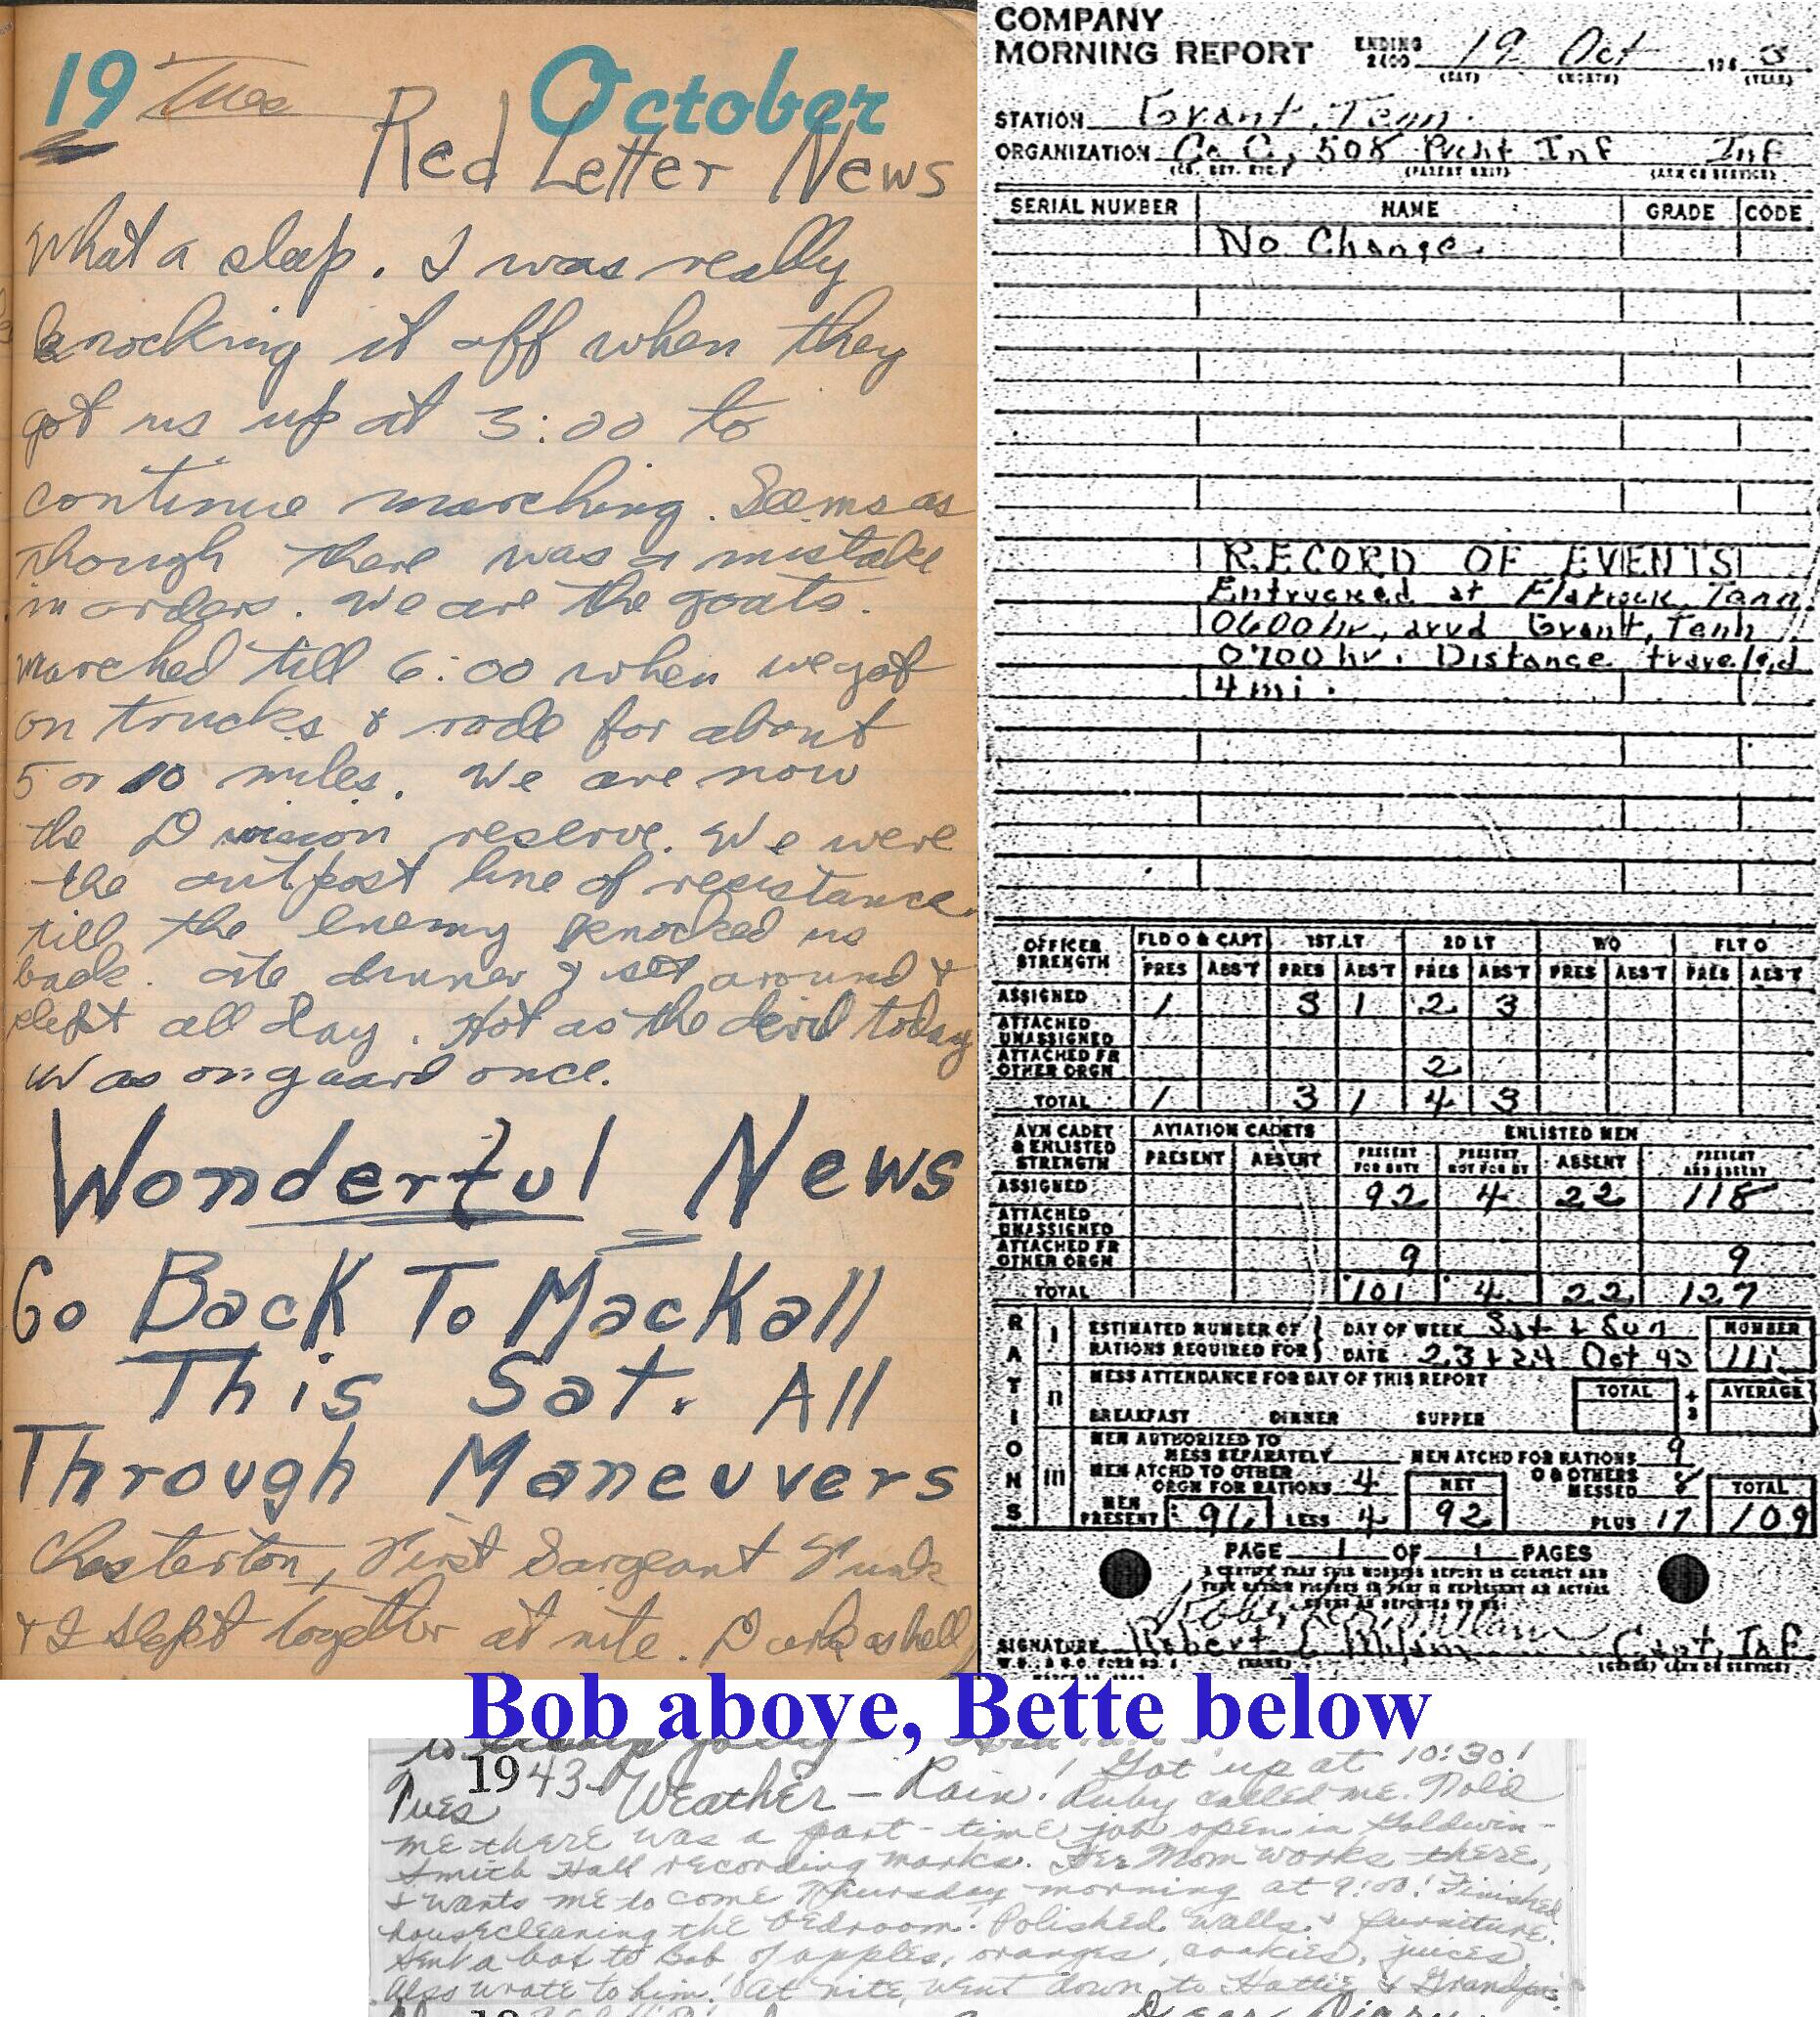 19 Tues October
Red Letter News
What a sleep. I was really
knocking it off when they
got us up at 3:00 to
continue marching. Seems as
though there was a mistake
in orders. We are the goats.
Marched till 6:00 when we got
on trucks & rode for about
5 or 10 miles. We are now
the Division reserve. We were
the outpost line of resistance
till the enemy knocked us
back. Ate dinner & sat around &
slept all day. Hot as the devil today
Was on guard once.
Wonderful News
Go Back To Mackall
This Sat. All
Through Maneuvers
Chesterton, First Sargeant Funk
& I slept together at nite. Dark as hell
COMPANY
MORNING REPORT ENDING 2400 19 Oct 1943
(DAY) (MONTH) (YEAR)
STATION Grant, Tenn.
ORGANIZATION Co C, 508 Prcht Inf Inf
(CO. DET. ETC.) (PARENT UNIT) (ARM OR SERVICE)
SERIAL NUMBER NAME GRADE CODE
No Change
RECORD OF EVENTS
Entrucked at Flatrock Tenn
0600 hr, arvd Grant, Tenn
0700 hr. Distance traveled
4 mi.
OFFICER STRENGTH FLD O & CAPT 1ST LT 2D LT WO FLT O
PRES ABS'T PRES ABS'T PRES ABS'T PRES ABS'T PRES ABS'T
ASSIGNED 1 3 1 2 3
ATTACHED UNASSIGNED
ATTACHED FR OTHER ORGN 2
TOTAL 1 3 1 4 3
AVN CADET & ENLISTED STRENGTH AVIATION CADETS ENLISTED MEN
PRESENT ABSENT PRESENT FOR DUTY PRESENT NOT FOR DY ABSENT PRESENT AND ABSENT
ASSIGNED 92 4 22 118
ATTACHED UNASSIGNED
ATTACHED FR OTHER ORGN 9 9
TOTAL 101 4 22 127
RATIONS
I ESTIMATED NUMBER OF RATIONS REQUIRED FOR DAY OF WEEK Sat & Sun NUMBER
DATE 23 & 24 Oct 43
II MESS ATTENDANCE FOR DAY OF THIS REPORT TOTAL ÷ 3 AVERAGE
BREAKFAST DINNER SUPPER
III MEN AUTHORIZED TO MESS SEPARATELY MEN ATCHD FOR RATIONS 9
MEN ATCHD TO OTHER ORGN FOR RATIONS 4 NET O & OTHERS MESSED 8 TOTAL
MEN PRESENT 96 LESS 4 92 PLUS 17 109
PAGE 1 OF 1 PAGES
I CERTIFY THAT THIS MORNING REPORT IS CORRECT AND
SIGNATURE Robert Capt, Inf
(NAME) (GRADE) (ARM OR SERVICE)
Bob above, Bette below
1943 - Weather - Rain! Got up at 10:30!
Tues Ruby called me. Told
me there was a part-time job open in Goldwin-
Smith Hall recording marks. Her Mom works there,
& wants me to come Thursday morning at 9:00! Finished
housecleaning the bedroom! Polished walls & furniture.
Sent a box to Bob of apples, oranges, cookies, juices.
Also wrote to him! At nite, went down to Hattie & Grandpa's.
Dear Diary